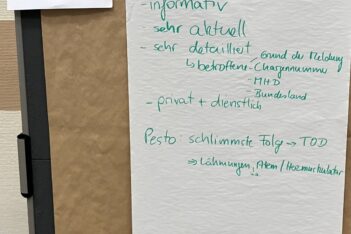 - informativ
- sehr aktuell
- sehr detailliert
Grund der Meldung
↳ betroffene - Chargennummer
- MHD
- Bundesland
- privat + dienstlich
Pesto: schlimmste Folg → TOD
⇒ Lähmungen, Atem / Herzmuskulatur